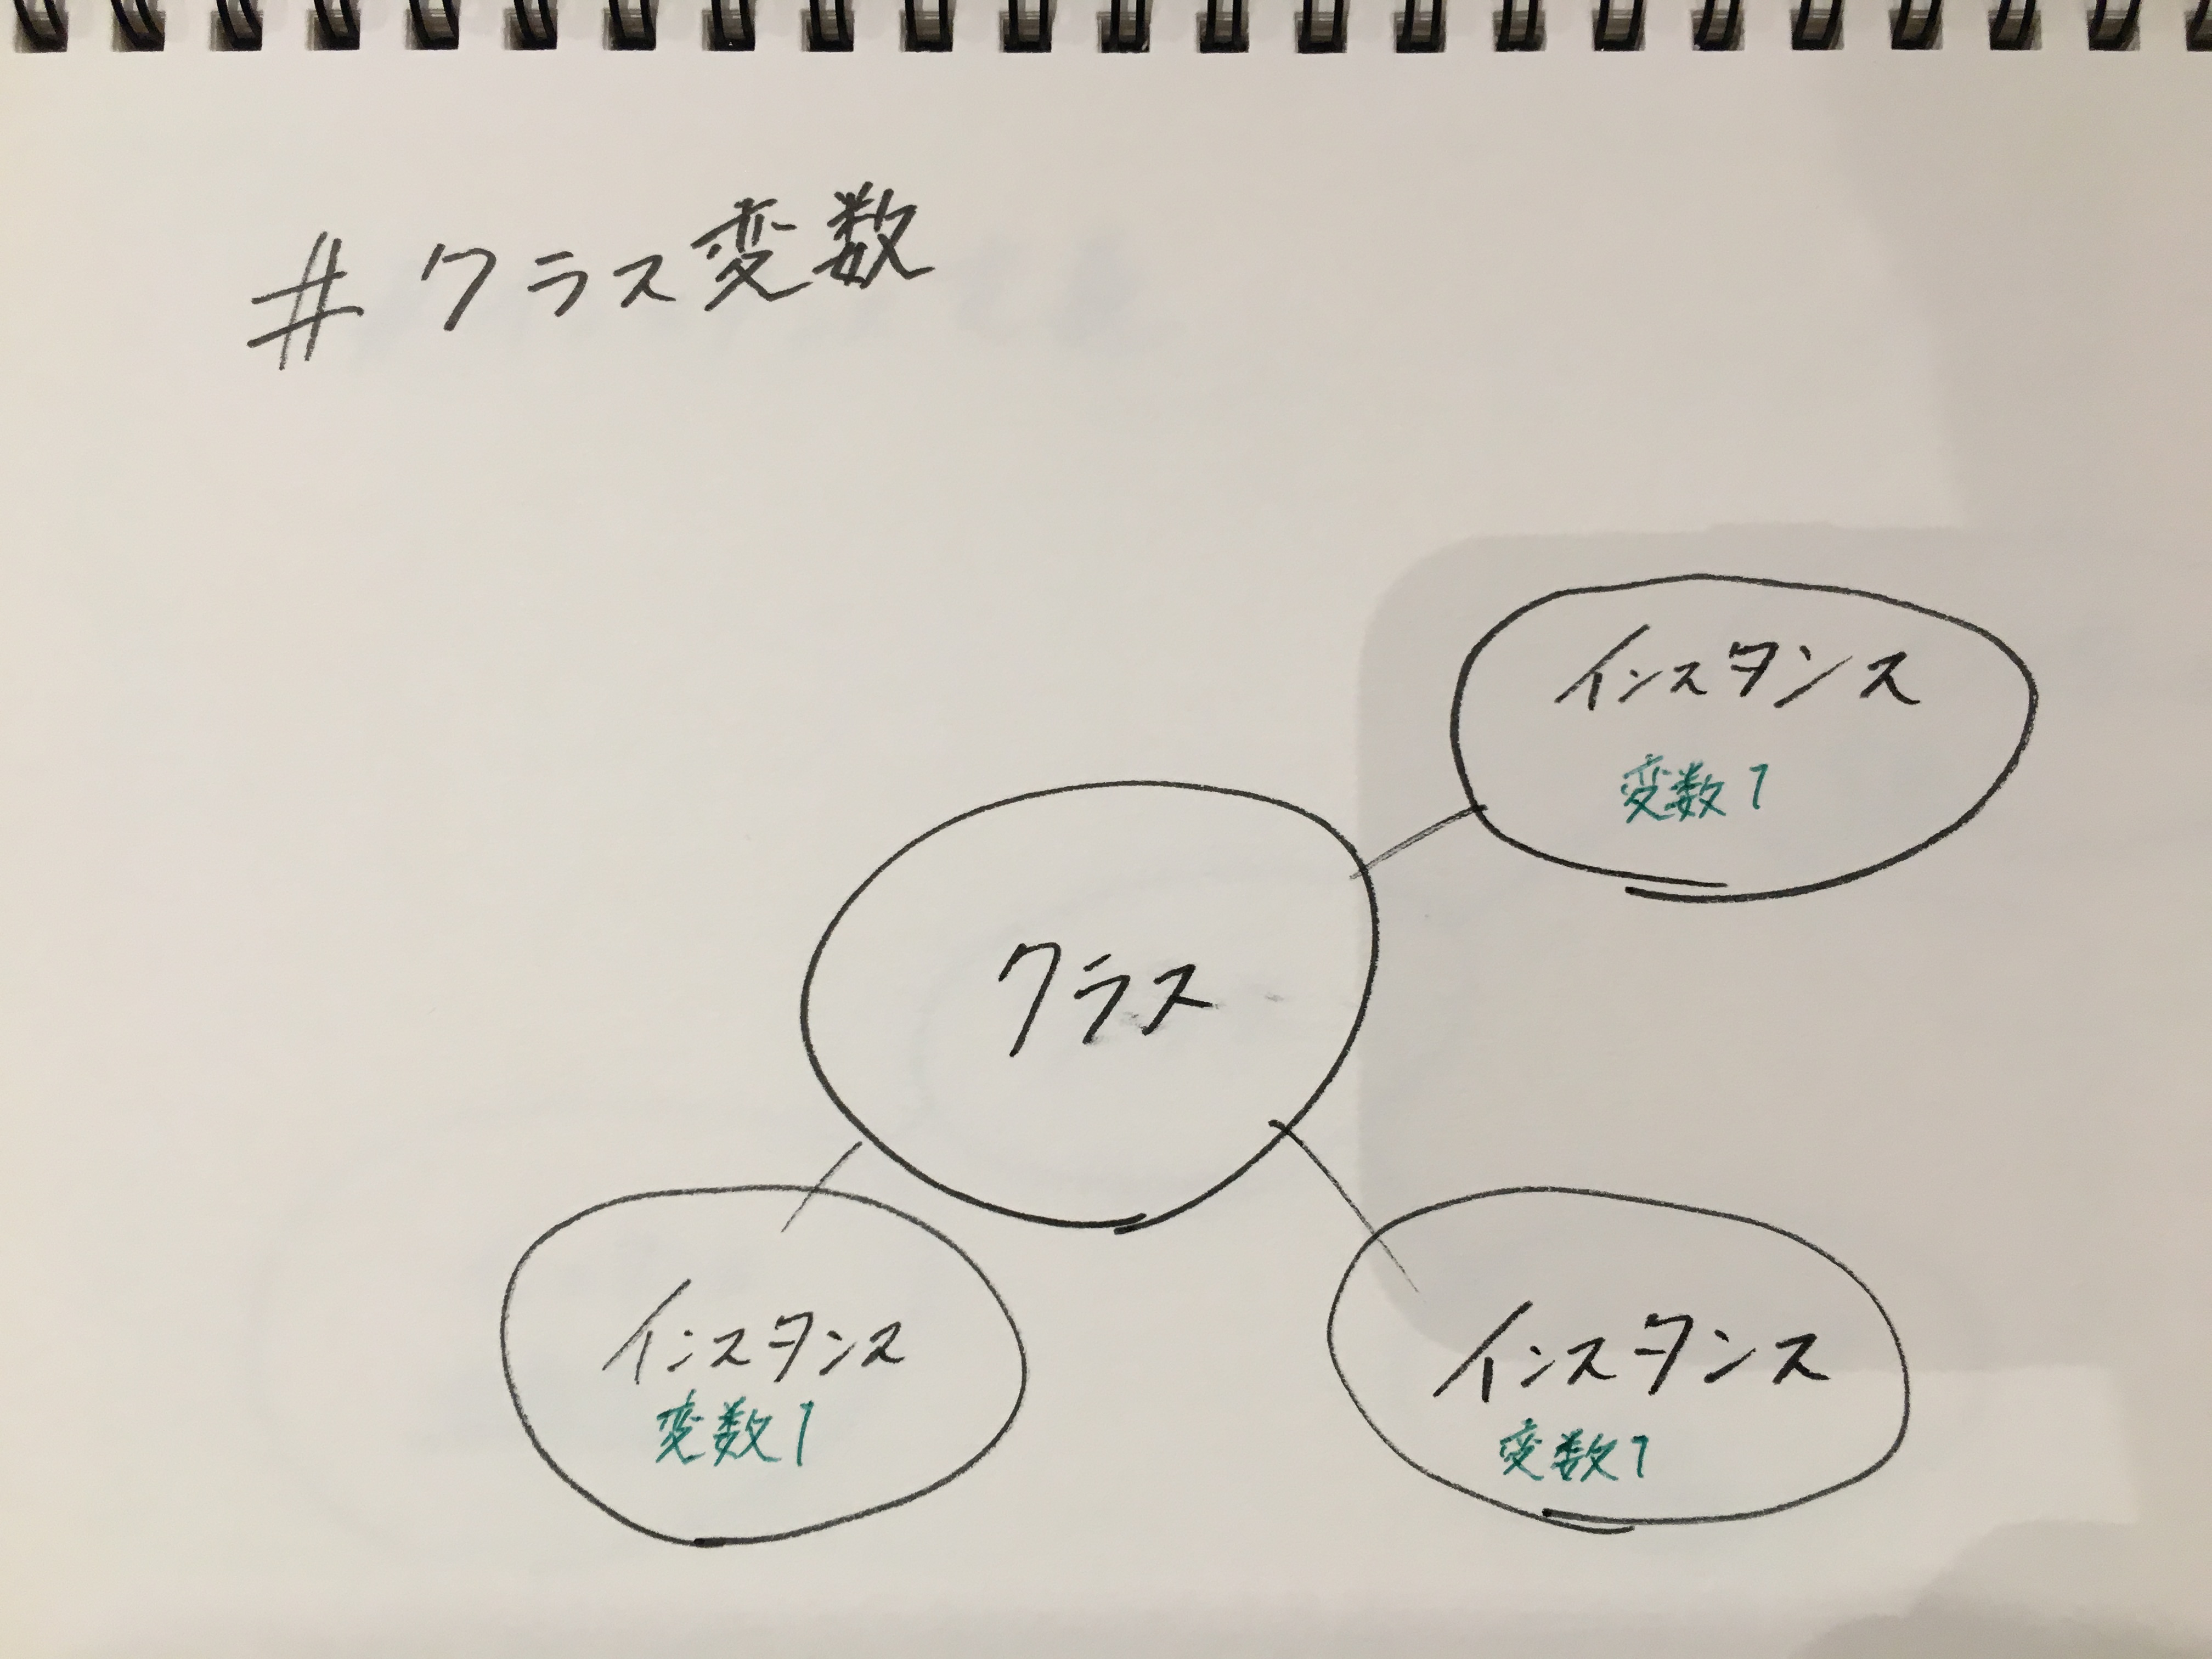 # クラス変数
インスタンス
変数1
クラス
インスタンス
変数1
インスタンス
変数1